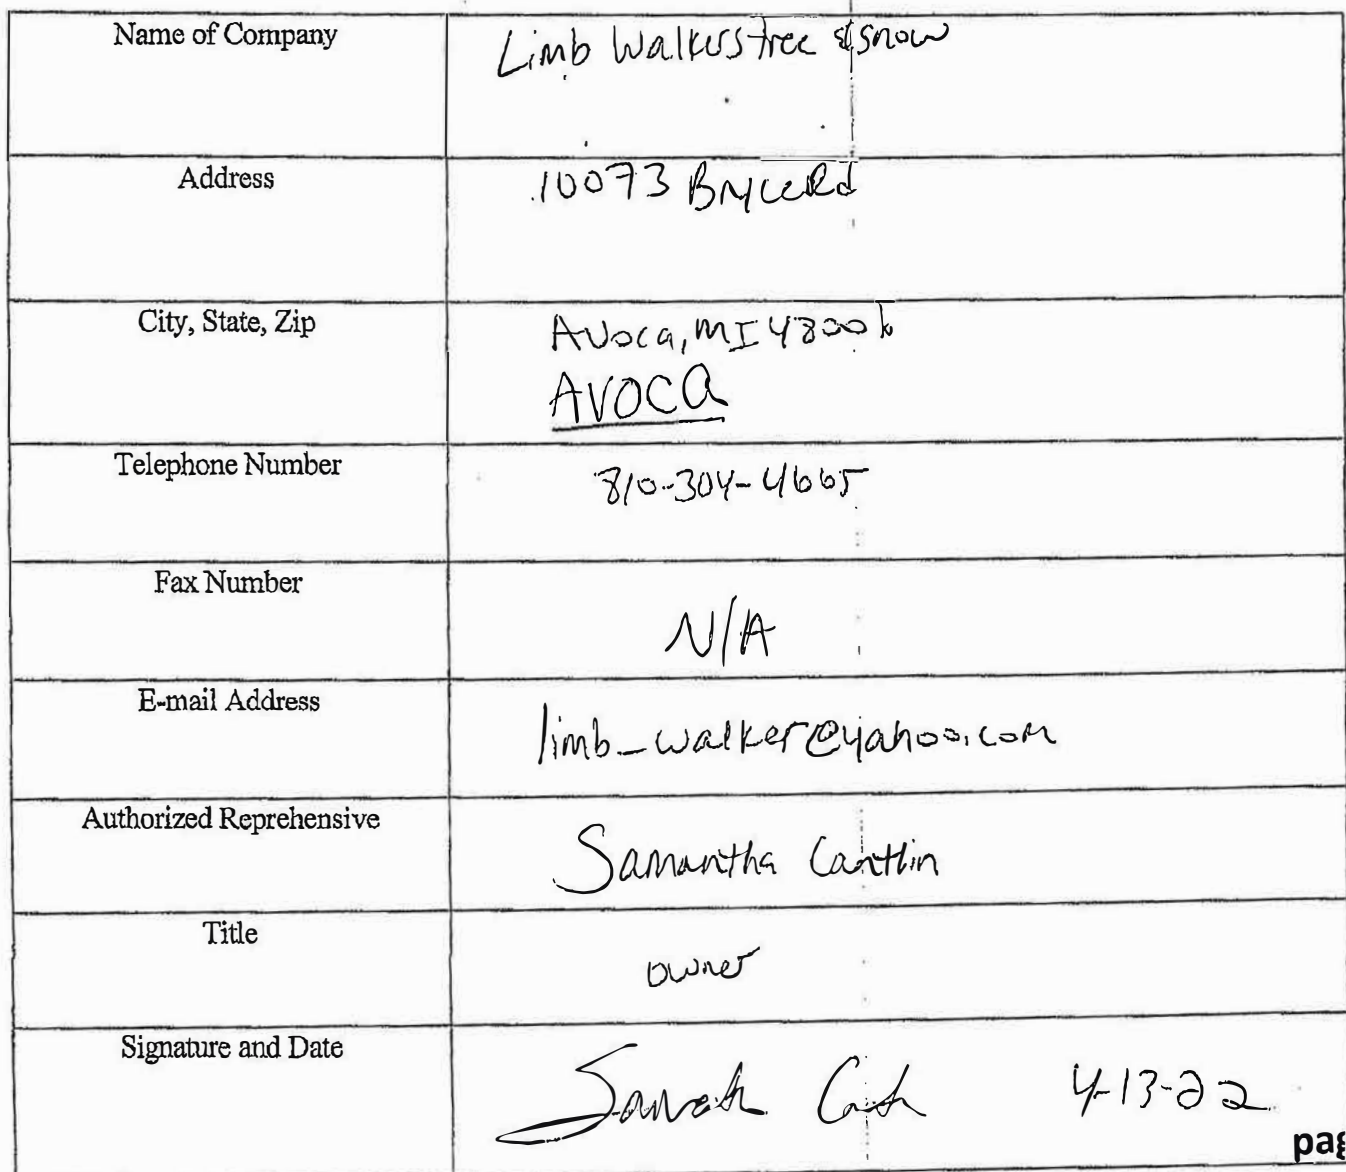 Name of Company
Limb Walkers tree & snow
Address
10073 Bryce Rd
City, State, Zip
Avoca, MI 48006
AVOCA
Telephone Number
810-304-4665
Fax Number
N/A
E-mail Address
limb_walker@yahoo.com
Authorized Reprehensive
Samantha Cantlin
Title
owner
Signature and Date
4-13-22
pag